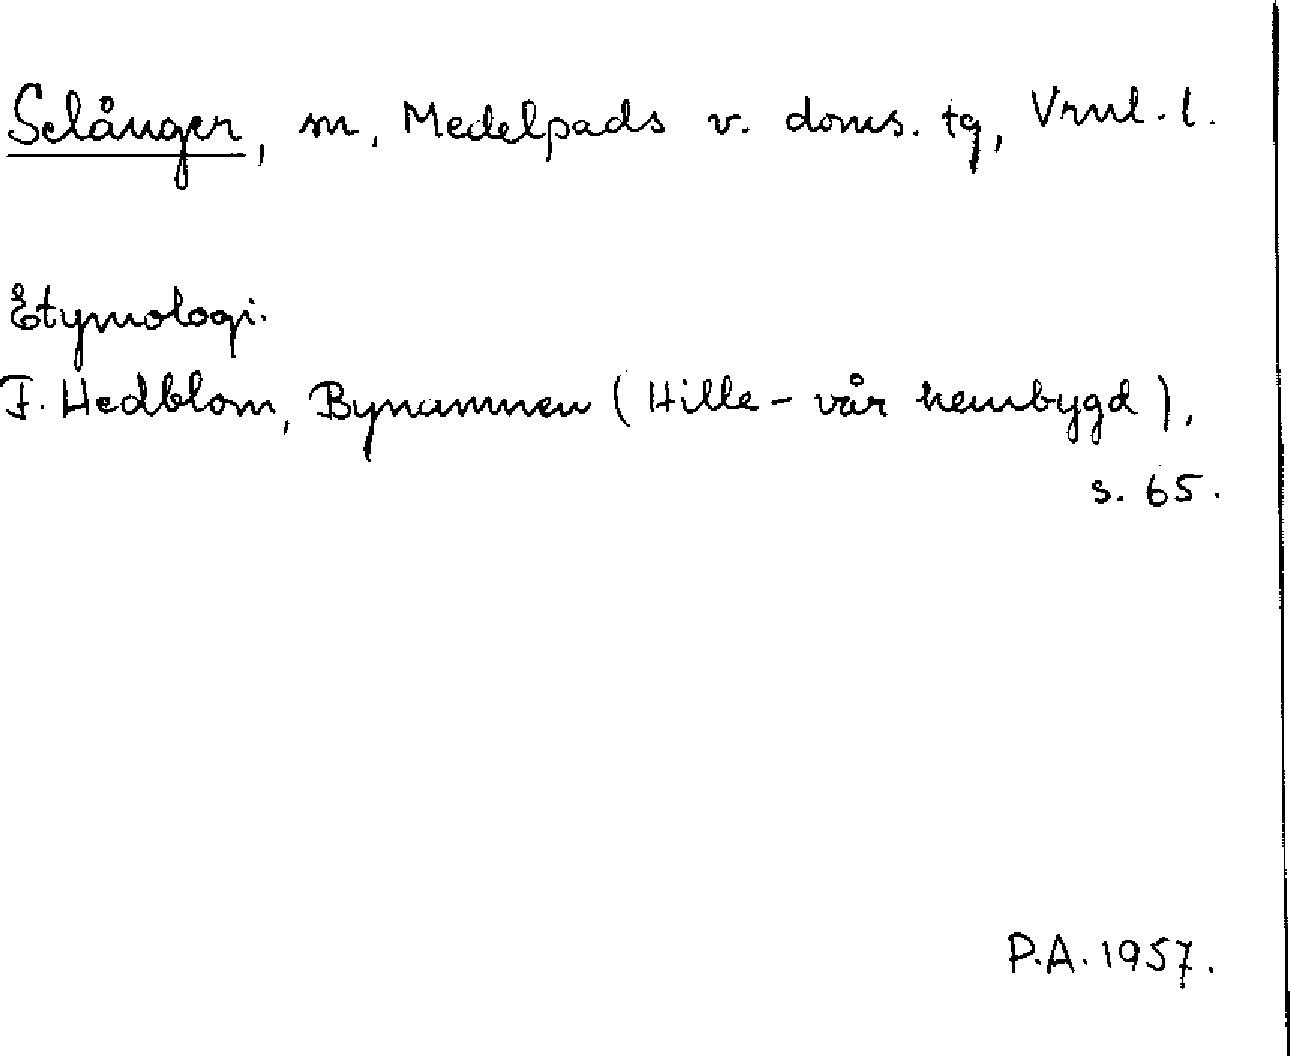 Selånger, sn, Medelpads v. doms. tg, Vrnl. l.
Etymologi.
F. Hedblom, Bynamnen (Hille - vår hembygd),
s. 65.
P.A. 1957.